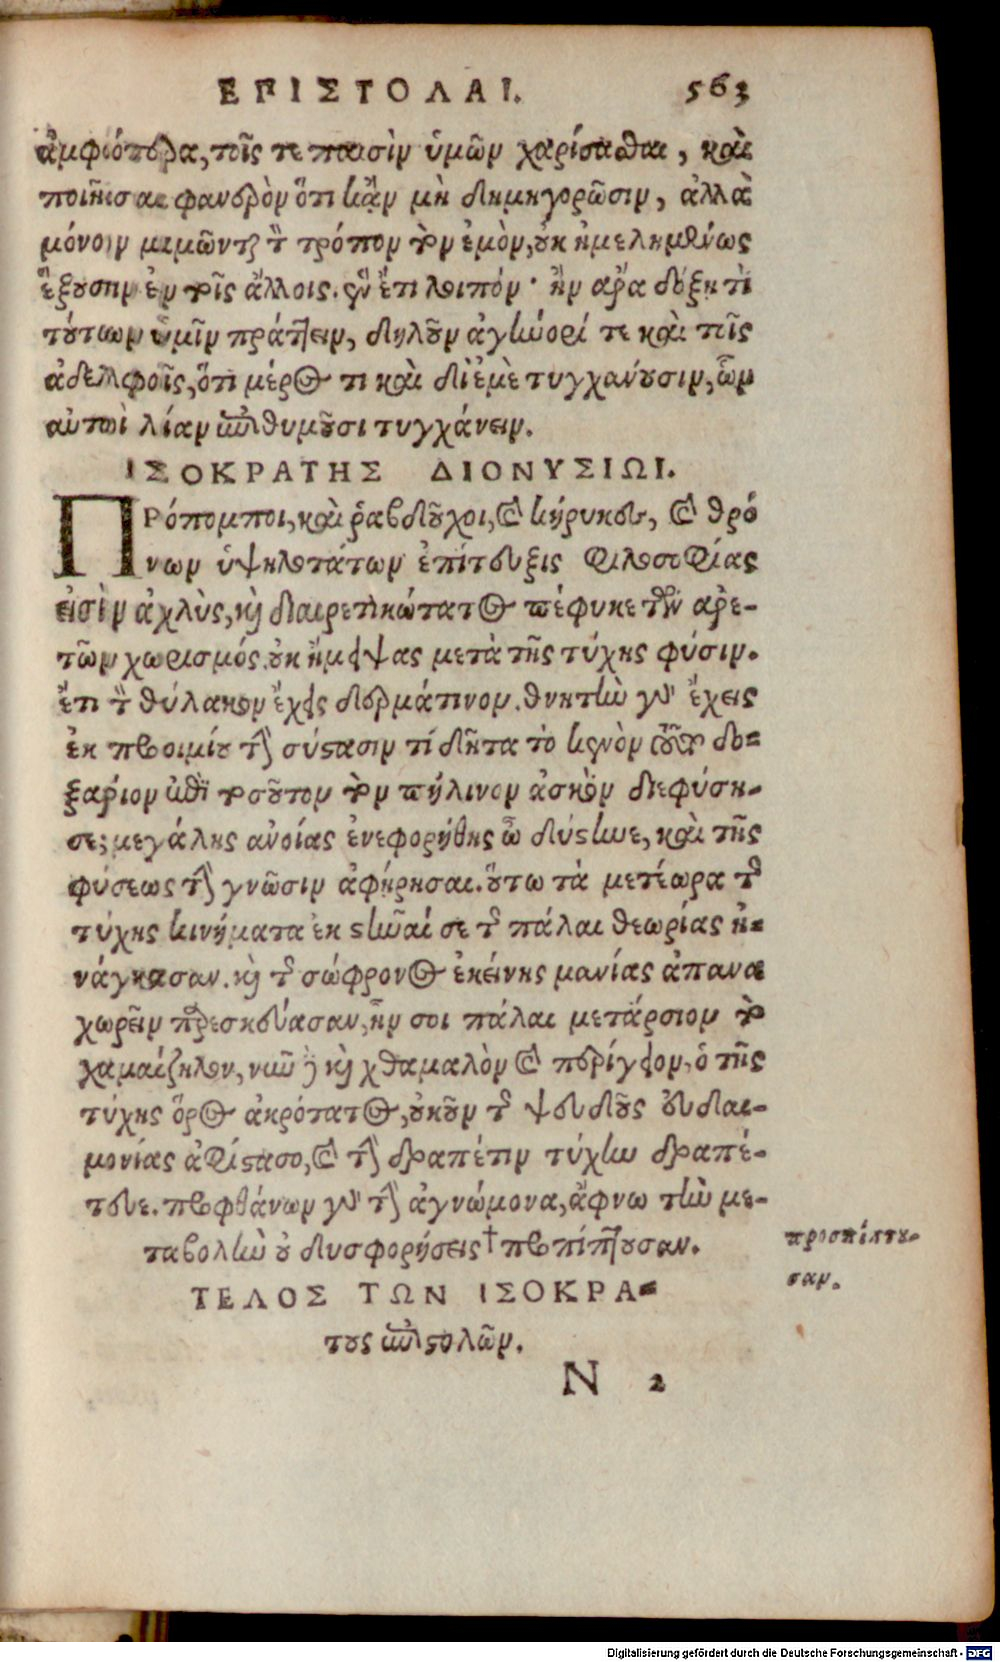 ΕΠΙΣΤΟΛΑΙ. 563
ἀμφότερα, τοῖς τε παισὶν ὑμῶν χαρίσασθαι, καὶ
ποιῆσαι φανερὸν ὅτι κἂν μὴ δημηγορῶσιν, ἀλλὰ
μόνον μιμῶνται τὸν τρόπον τὸν ἐμὸν, οὐκ ἠμελημένως
ἕξουσιν ἐν τοῖς ἄλλοις. ἓν ἔτι λοιπόν· ἢν ἄρα δόξῃ τὶ
τούτων ὑμῖν πράττειν, δηλοῦν ἀγήνορί τε καὶ τοῖς
ἀδελφοῖς, ὅτι μέρος τι καὶ δι' ἐμὲ τυγχάνουσιν, ὧν
αὐτοὶ λίαν ἐπιθυμοῦσι τυγχάνειν.
ΙΣΟΚΡΑΤΗΣ ΔΙΟΝΥΣΙΩΙ.
ΠΡόπομποι, καὶ ῥαβδοῦχοι, καὶ κήρυκες, καὶ θρό
νων ὑψηλοτάτων ἐπίτευξις φιλοσοφίας
εἰσὶν ἀχλὺς, καὶ διαιρετικώτατος πέφυκε τῶν ἀρε-
τῶν χωρισμός. οὐκ ἤμειψας μετὰ τῆς τύχης φύσιν.
ἔτι τὸν θύλακον ἔχεις δερμάτινον. θνητὴν γὰρ ἔχεις
ἐκ προιμίου τὴν σύστασιν τί δῆτα τὸ κενὸν τοῦτο δο-
ξάριον ἐπὶ τοσοῦτον τὸν πήλινον ἀσκὸν διεφύση-
σε; μεγάλης ἀνοίας ἐνεφορήθης ὦ δύστηνε, καὶ τῆς
φύσεως τὴν γνῶσιν ἀφῄρησαι. οὕτω τὰ μετέωρα τῆς
τύχης κινήματα ἐκστῆναί σε τῆς πάλαι θεωρίας ἠ-
νάγκασαν. καὶ τῆς σώφρονος ἐκείνης μανίας ἀπανα
χωρεῖν παρεσκεύασαν, ἦν σοι πάλαι μετάρσιον τὸ
χαμαίζηλον, νῦν δὲ καὶ χθαμαλὸν καὶ περίγειον, ὁ τῆς
τύχης ὅρος ἀκρότατος, οὐκοῦν τῆς ψευδοῦς εὐδαι-
μονίας ἀφίστασο, καὶ τὴν δραπέτιν τύχην δραπέ-
τευε. προφθάνων γὰρ τὴν ἀγνώμονα, ἄφνω τὴν με-
ταβολὴν οὐ δυσφορήσεις† προπίπτουσαν.
προσπίπτου-
σαν.
ΤΕΛΟΣ ΤΩΝ ΙΣΟΚΡΑ-
τους ἐπιστολῶν.
N 2
Digitalisierung gefördert durch die Deutsche Forschungsgemeinschaft - DFG